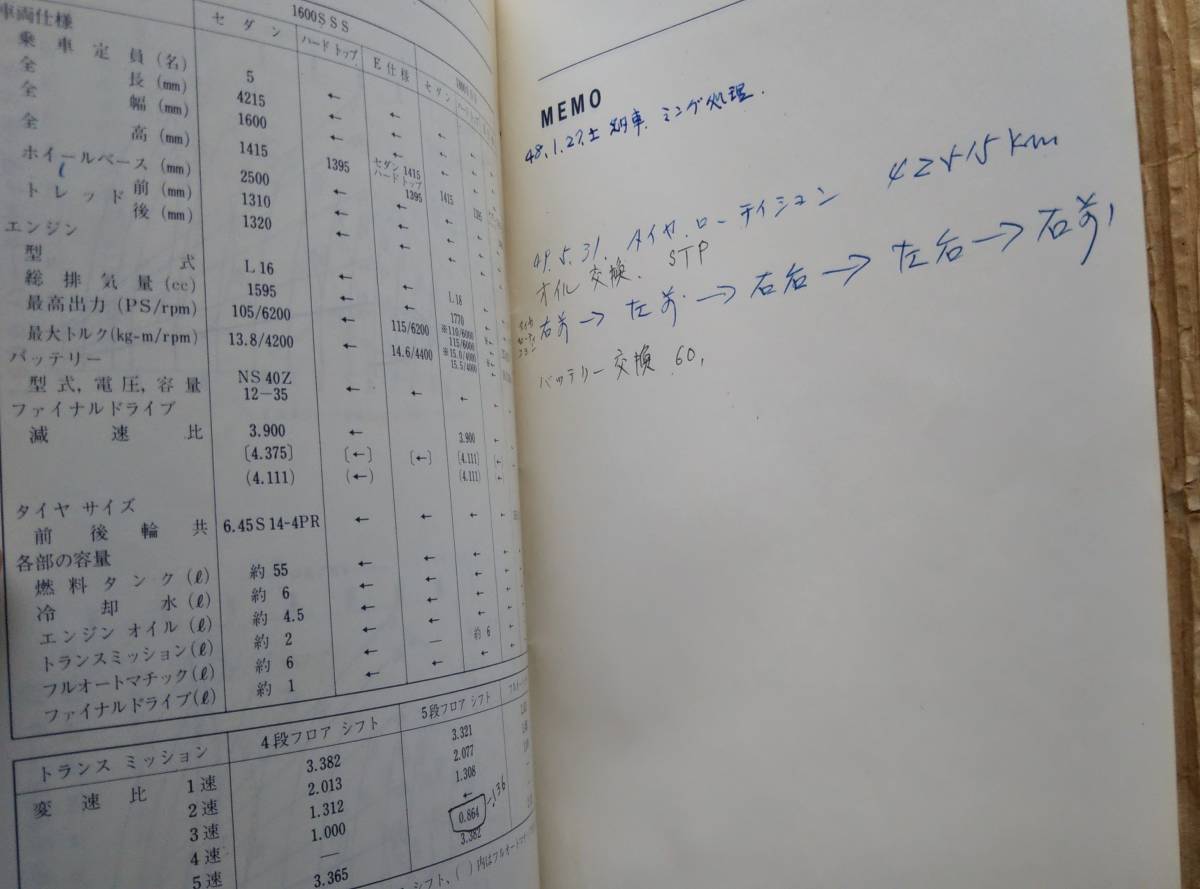 車両仕様
1600SSS
セダン ハードトップ E仕様 セダン
乗車定員(名) 5 ← ← ←
全長(mm) 4215 ← ← ←
全幅(mm) 1600 ← ← ←
全高(mm) 1415 1395 セダン 1415 ハードトップ 1395 1415 1395
ホイールベース(mm) 2500 ← ← ←
トレッド 前(mm) 1310 ← ← ←
後(mm) 1320 ← ← ←
エンジン
型式 L16 ← ← L18
総排気量(cc) 1595 ← ← 1770
最高出力(PS/rpm) 105/6200 ← 115/6200 ※110/6000 115/6000
最大トルク(kg-m/rpm) 13.8/4200 ← 14.6/4400 ※15.0/4000 15.5/4000
バッテリー
型式,電圧,容量 NS40Z 12-35 ← ← ←
ファイナルドライブ
減速比 3.900 ← 3.900 ←
〔4.375〕 〔←〕 〔←〕 〔4.111〕 〔←
(4.111) (←) (4.111) ←
タイヤサイズ
前後輪共 6.45S14-4PR ← ← ← ←
各部の容量
燃料タンク(ℓ) 約 55 ← ← ←
冷却水(ℓ) 約 6 ← ← ←
エンジンオイル(ℓ) 約 4.5 ← ← ←
トランスミッション(ℓ) 約 2 ← ← ←
フルオートマチック(ℓ) 約 6 ← — 約 6 ←
ファイナルドライブ(ℓ) 約 1 ← ← ← ←
トランスミッション 4段フロアシフト 5段フロアシフト
変速比 1速 3.382 3.321
2速 2.013 2.077
3速 1.312 1.308
4速 1.000 ←
5速 — 0.864 136
3.365 3.382
シフト、( )内はフルオートマ
MEMO
48.1.27.土 納車. ミング処理.
49.5.31. タイヤ.ローテイション 42415km
オイル交換. STP
右前→左前→右右→左右→右前
バッテリー交換 60,